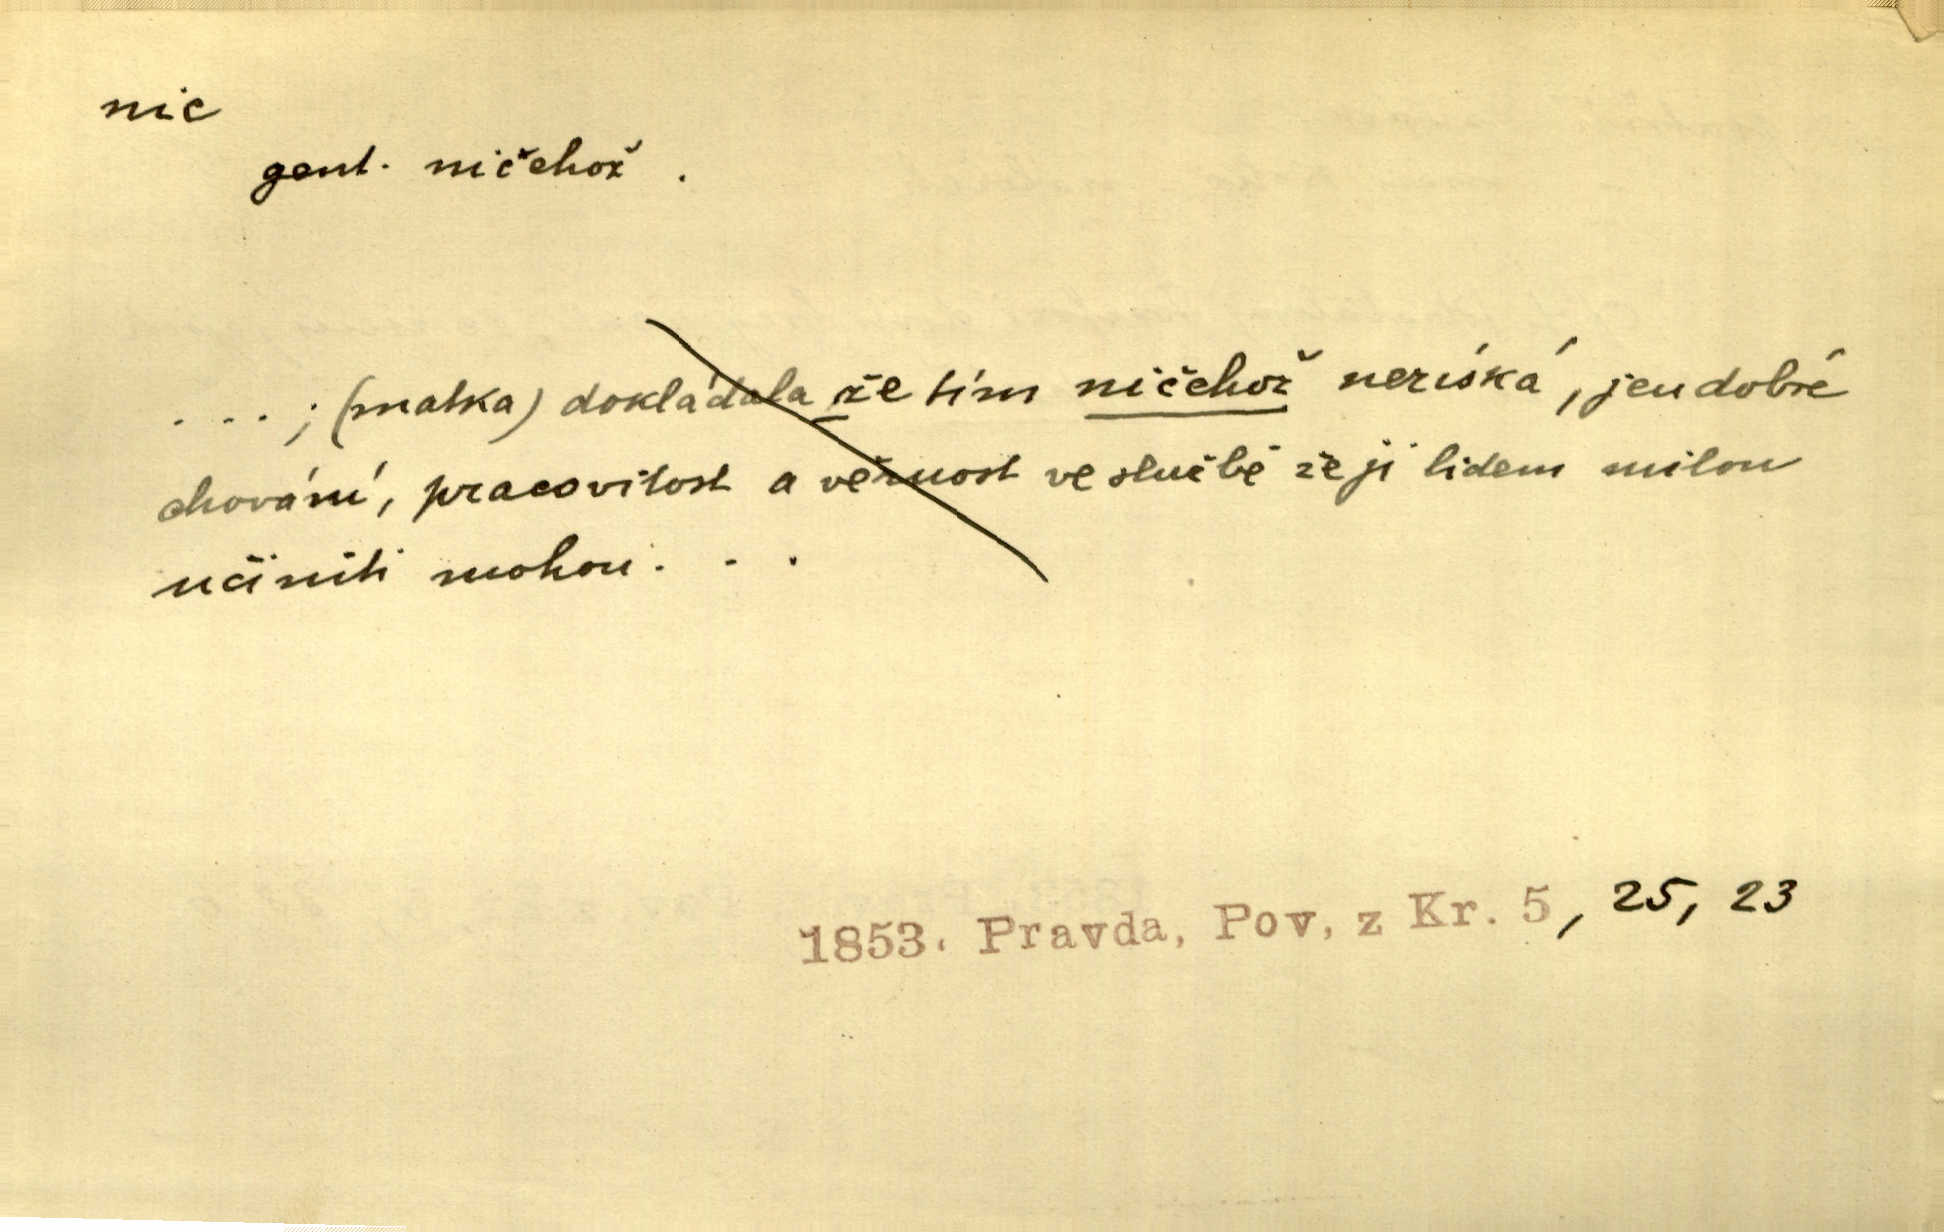 nic
gent. ničehož.
...; (matka) dokládala že tím ničehož nezíská, jen dobré
chování, pracovitost a věrnost ve službě že ji lidem milou
učiniti mohou...
1853. Pravda, Pov, z Kr. 5, 25, 23